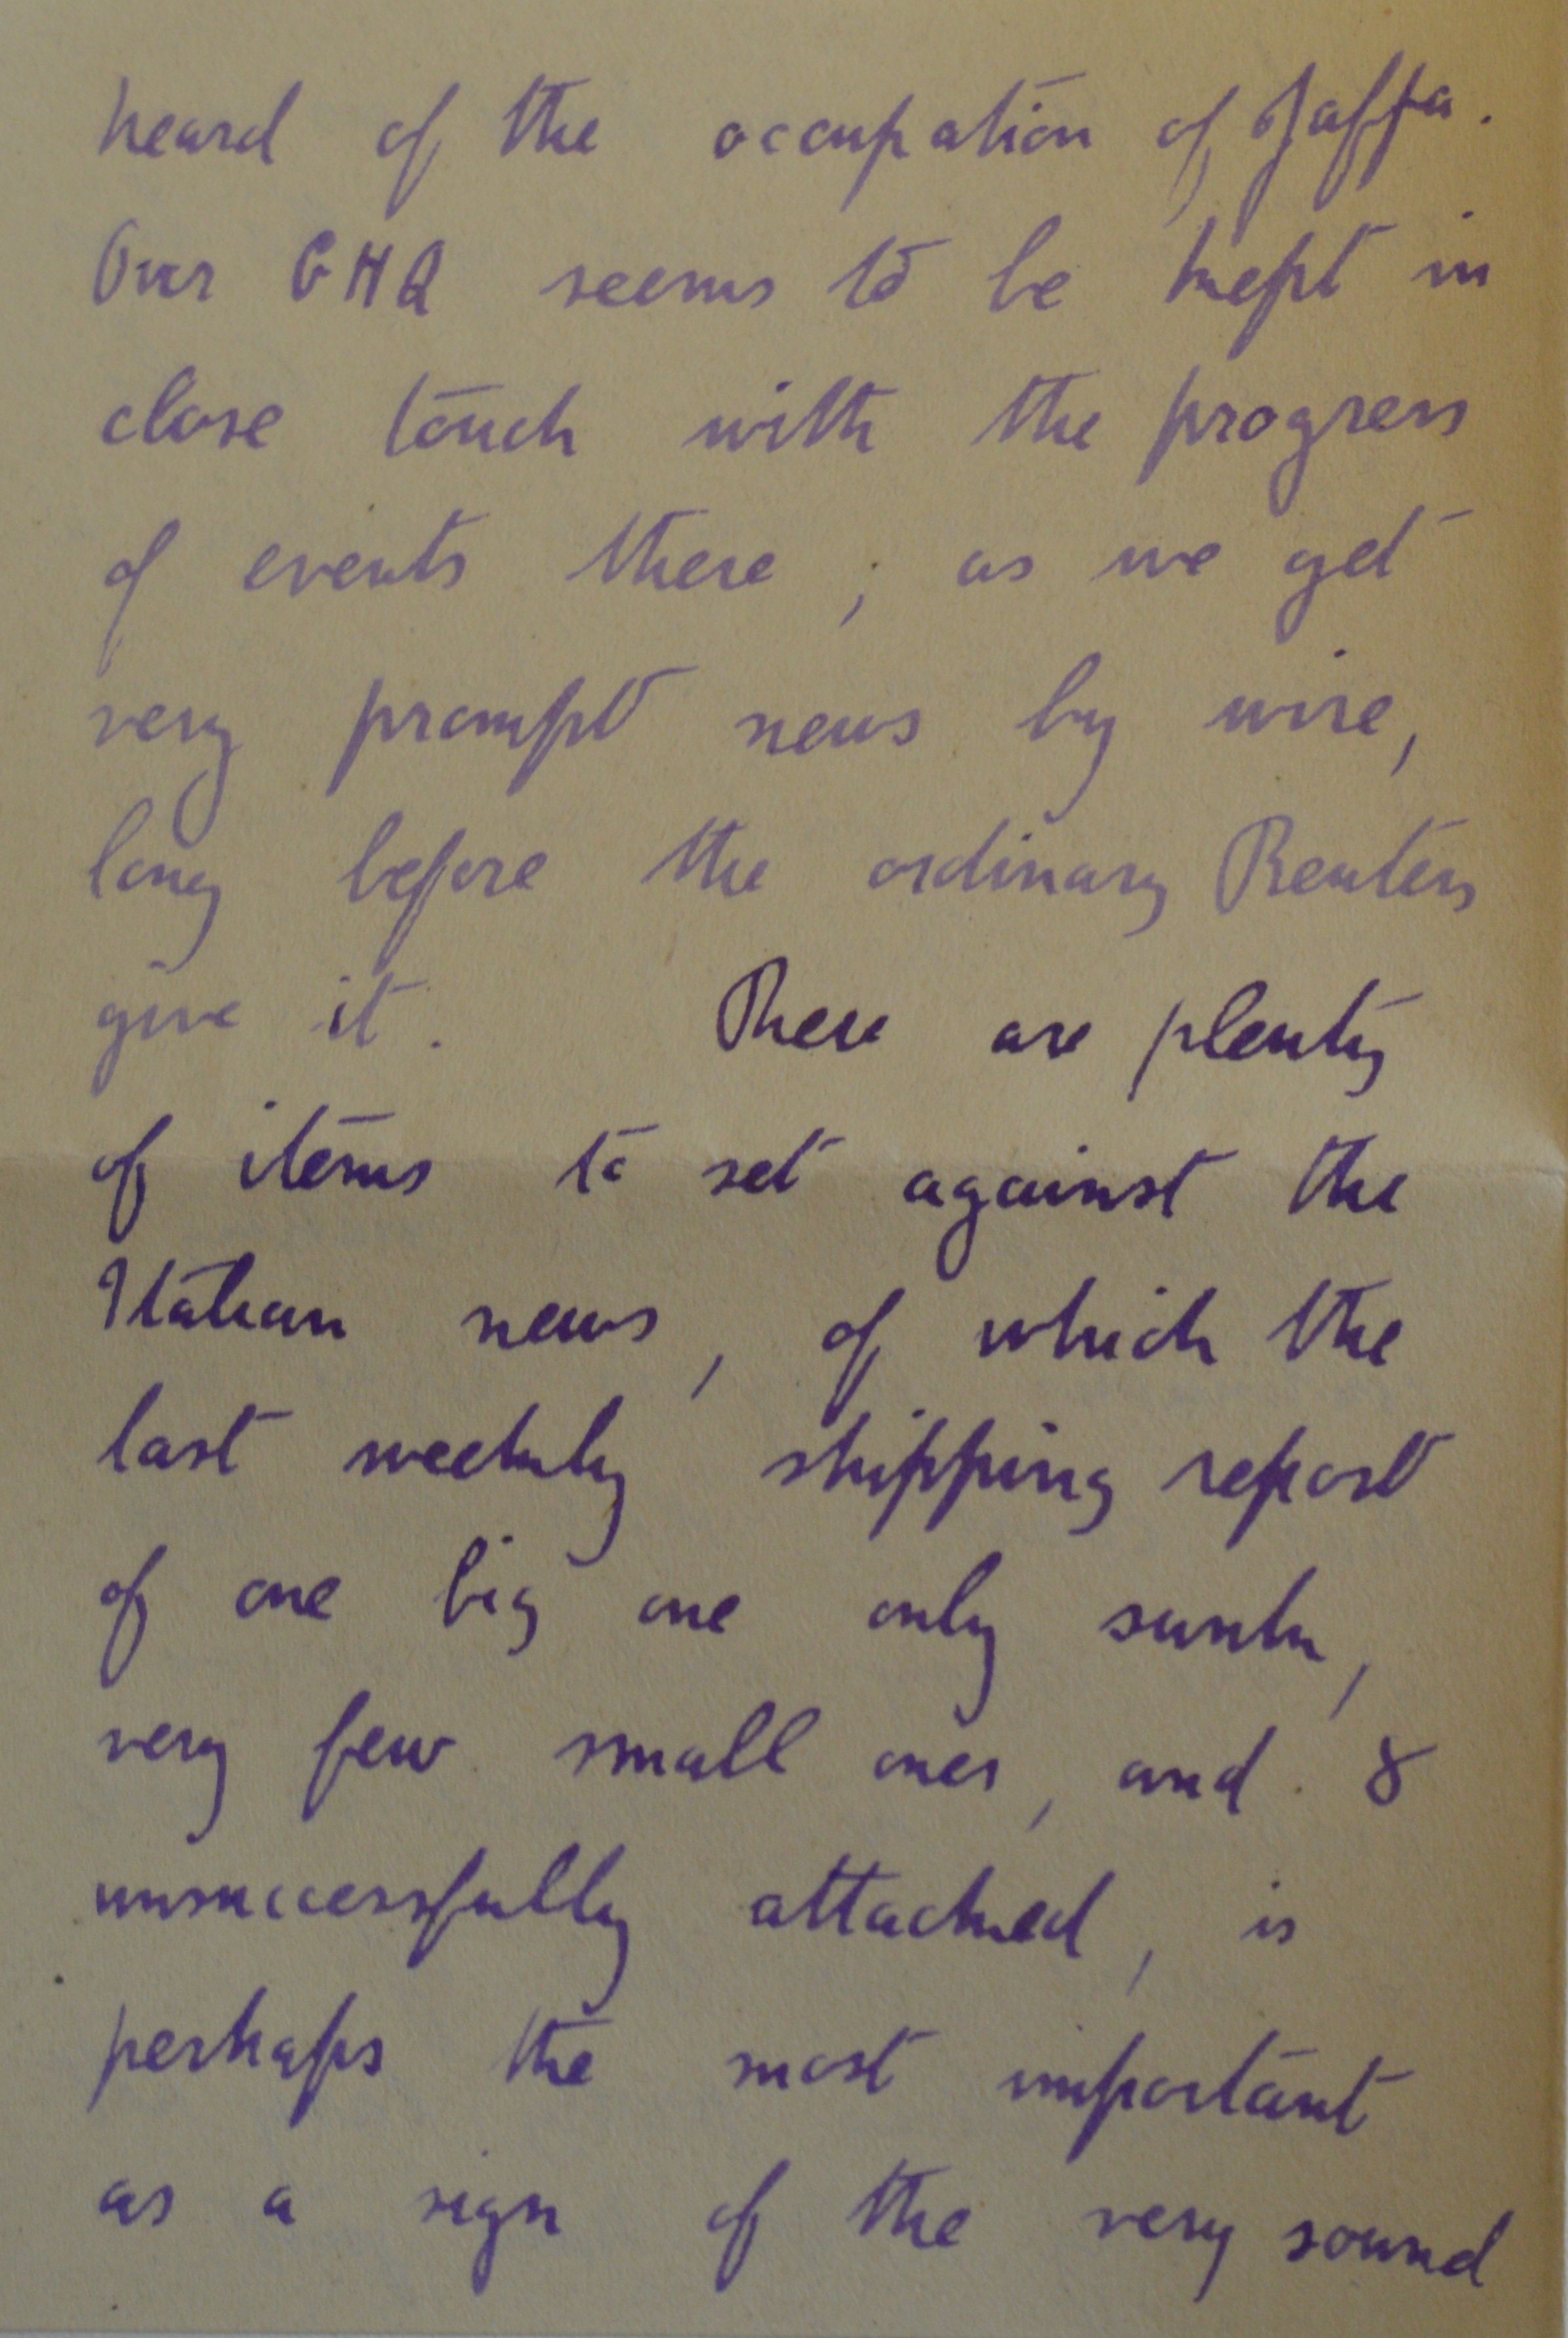 heard of the occupation of Jaffa.
Our GHQ seems to be kept in
close touch with the progress
of events there; as we get
very prompt news by wire,
long before the ordinary Reuters
give it. There are plenty
of items to set against the
Italian news, of which the
last weekly shipping report
of one big one only sunk,
very few small ones, and 8
unsuccessfully attacked, is
perhaps the most important
as a sign of the very sound